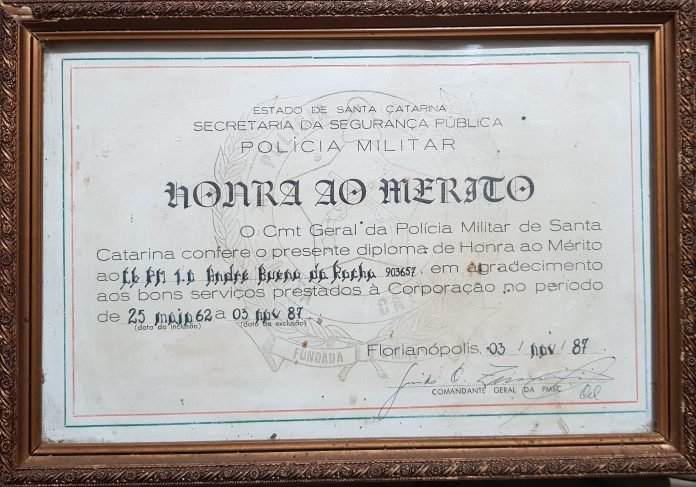 ESTADO DE SANTA CATARINA
SECRETARIA DA SEGURANÇA PÚBLICA
POLÍCIA MILITAR
HONRA AO MERITO
O Cmt Geral da Polícia Militar de Santa
Catarina confere o presente diploma de Honra ao Mérito
ao Cb PM 1.0 André Bueno da Rocha 903657. em agradecimento
aos bons serviços prestados à Corporação no período
de 25 maio 62 a 03 nov 87.
(data da inclusão) (data da exclusão)
FUNDADA
Florianópolis, 03 / nov / 87.
COMANDANTE GERAL DA PMSC